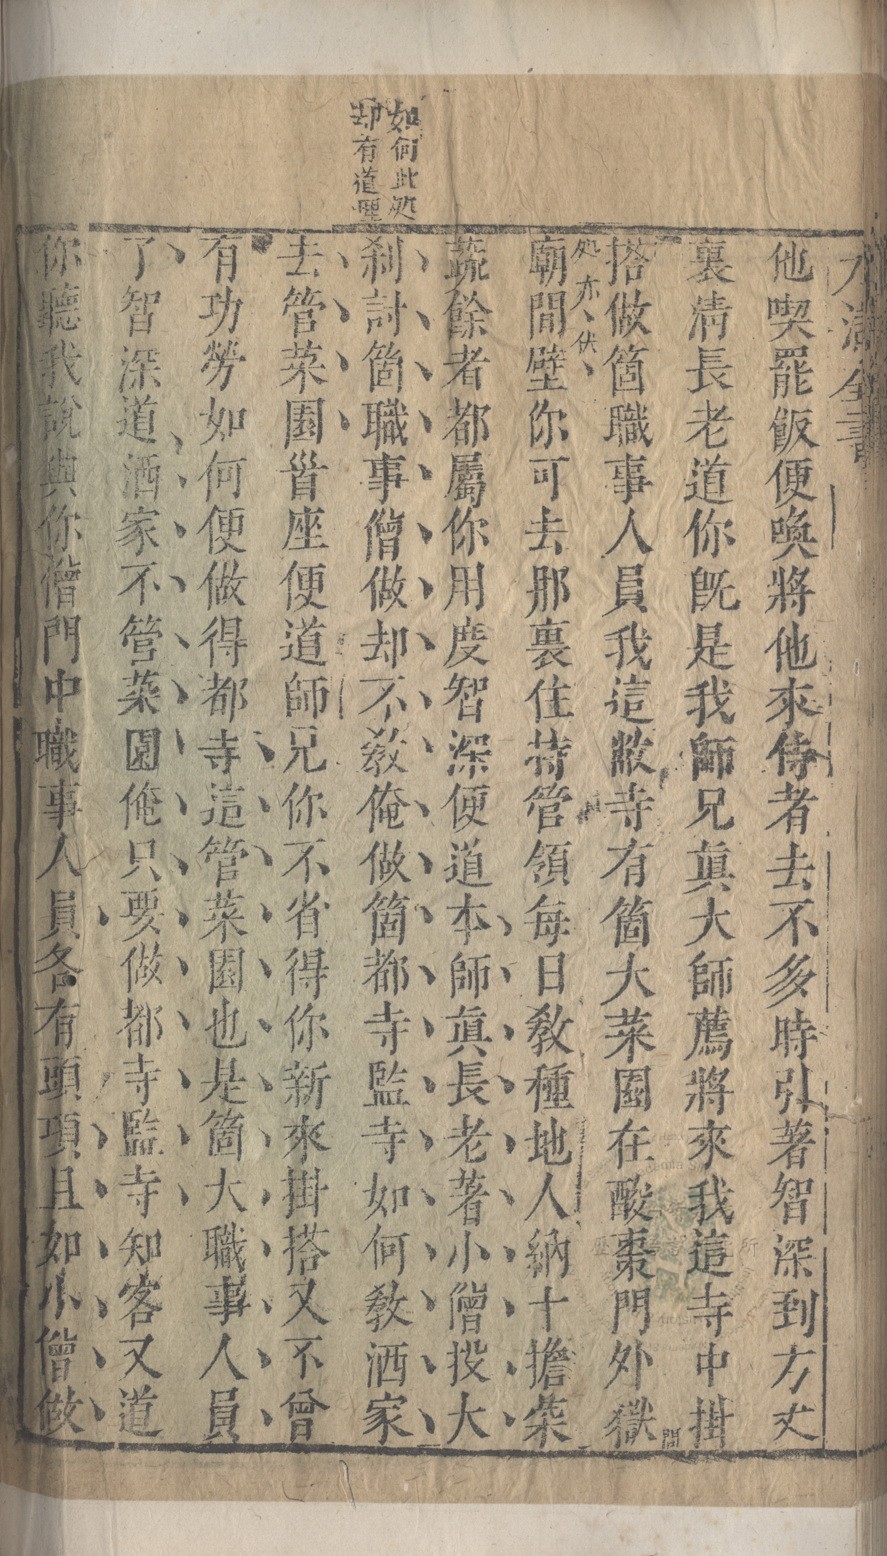 水滸全書
他喫罷飯便喚將他來侍者去不多時引著智深到方丈
裏清長老道你既是我師兄真大師薦將來我這寺中掛
搭做箇職事人員我這敝寺有箇大菜園在酸棗門外嶽
廟間壁你可去那裏住持管領每日教種地人納十擔菜
蔬餘者都屬你用度智深便道本師真長老著小僧投大
剎討箇職事僧做却不教俺做箇都寺監寺如何教洒家
去管菜園首座便道師兄你不省得你新來掛搭又不曾
有功勞如何便做得都寺這管菜園也是箇大職事人員
了智深道洒家不管菜園俺只要做都寺監寺知客又道
你聽我說與你僧門中職事人員各有頭項且如小僧做
如何此処
却有道理
処亦伏